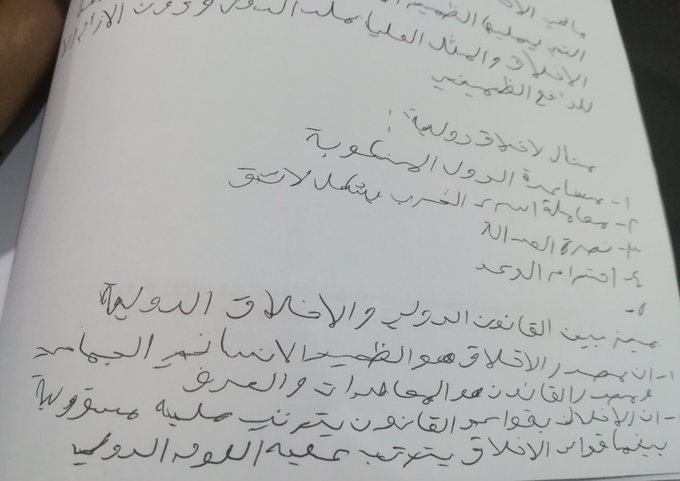 ما هي الا
التي يمليها الظميـ
الاخلاق والمثل العليا على الدول ودون الا
للدافع الظميـ
مثال لاخلاق دولية:
١- مساعدة الدول المنكوبة
٢- معاملة اسرى الحرب بشكل لائق
٣- نصرة العدالة
٤- احترام الوعد
٥-
ميز بين القانون الدولي والاخلاق الدولية
١- ان مصدر الاخلاق هو الظمير الانساني الجماعي
ومصدر القانون هو المعاهدات والعرف
- ان الاخلال بقواعد القانون يترتب عليه مسؤولية
بينما قواعد الاخلاق يترتب عليه اللوم الدولي